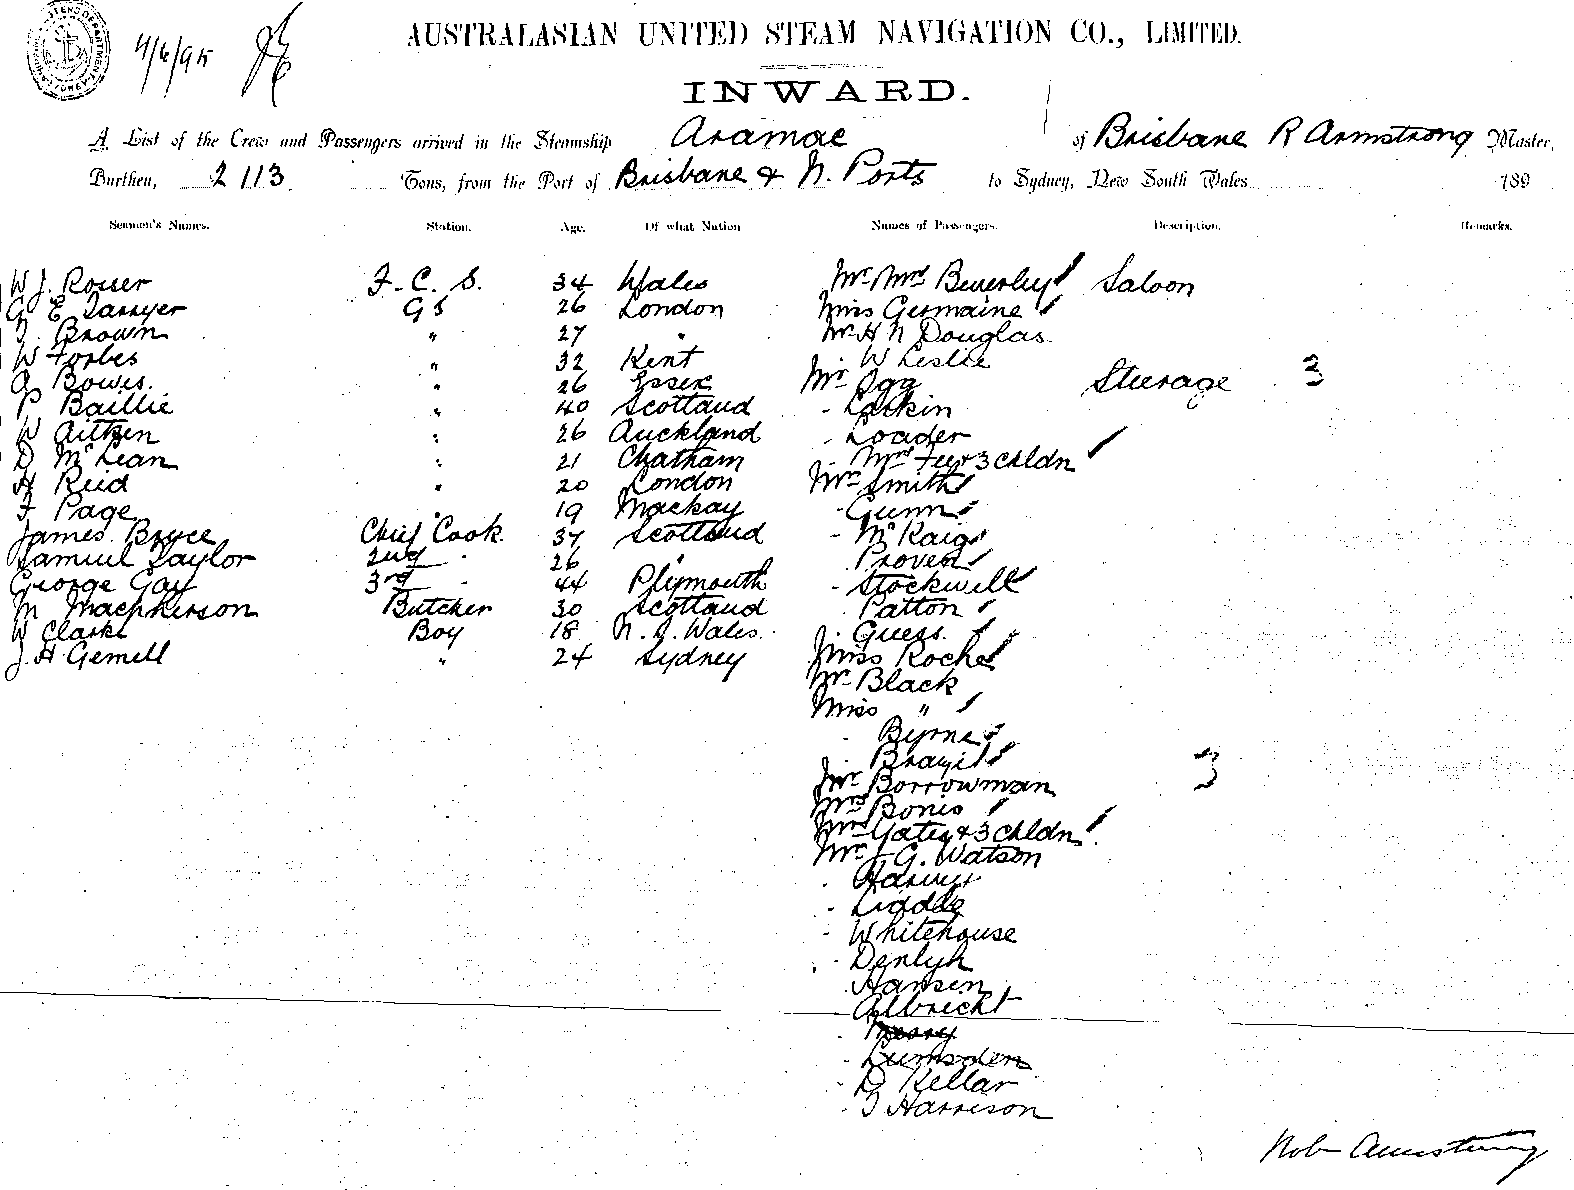 4/6/95
AUSTRALASIAN UNITED STEAM NAVIGATION CO., LIMITED.
INWARD.
A List of the Crew and Passengers arrived in the Steamship Aramac of Brisbane R Armstrong Master,
Burthen, 2113 Tons, from the Port of Brisbane & N. Ports to Sydney, New South Wales 189
Seamen's Names. Station. Age. Of what Nation Names of Passengers. Description. Remarks.
W J. Rosser F. C. S. 34 Wales Mr. Mrs Beverley Saloon
G E Sawyer GS 26 London Miss Germaine
J. Brown " 27 " Mr. H N Douglas
W Forbes " 32 Kent W Leslie
A Bowes. " 26 Essex Mr Ogg Steerage 3
P Baillie " 40 Scotland - Larkin
W Aitken " 26 Auckland - Loader
D McLean " 21 Chatham - Mrs Fey & 3 chldn
H Reid " 20 London Mr Smith
F Page " 19 Mackay - Gunn
James Bryce Chief Cook. 37 Scotland - McKaig
Samuel Taylor 2nd - 26 " Proven
George Gay 3rd - 44 Plymouth - Stockwell
M Macpherson Butcher 30 Scotland - Patton
W Clarke Boy 18 N. S. Wales. - Guess.
J. H Gemell " 24 Sydney Miss Roche
Mr Black
Miss "
- Byrne
- Brayil
Mr Borrowman 3
Mrs Bonis
Mrs Yates & 3 chldn
Mr J G. Watson
- Harvey
- Liddle
- Whitehouse
- Denlyh
- Hansen
Albrecht
- Lumsden
- D Kellar
- J Harrison
Robt Armstrong